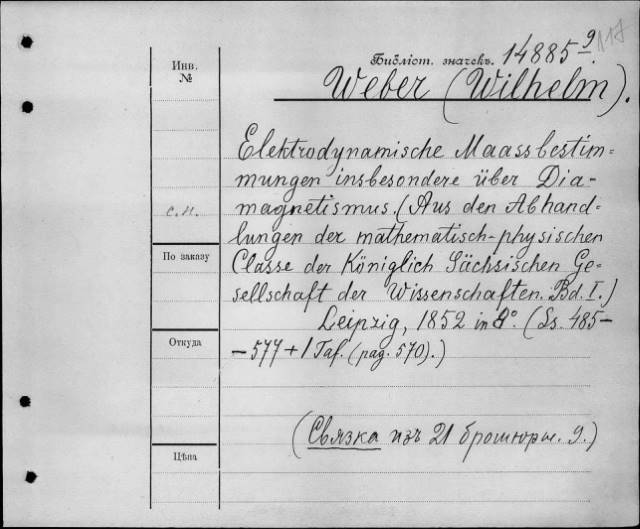 Библіот. значекъ. 14885 9. 117
Инв.
№
Weber (Wilhelm).
Elektrodynamische Maassbestim=
mungen insbesondere über Dia-
magnetismus. (Aus den Abhand=
lungen der mathematisch-physischen
Classe der Königlich Sächsischen Ge=
sellschaft der Wissenschaften. Bd. I.)
Leipzig, 1852 in 8°. (Ss. 485-
-577 + 1 Taf. (pag. 570).)
(Связка изъ 21 брошюры. 9.)
с.н.
По заказу
Откуда
Цѣна